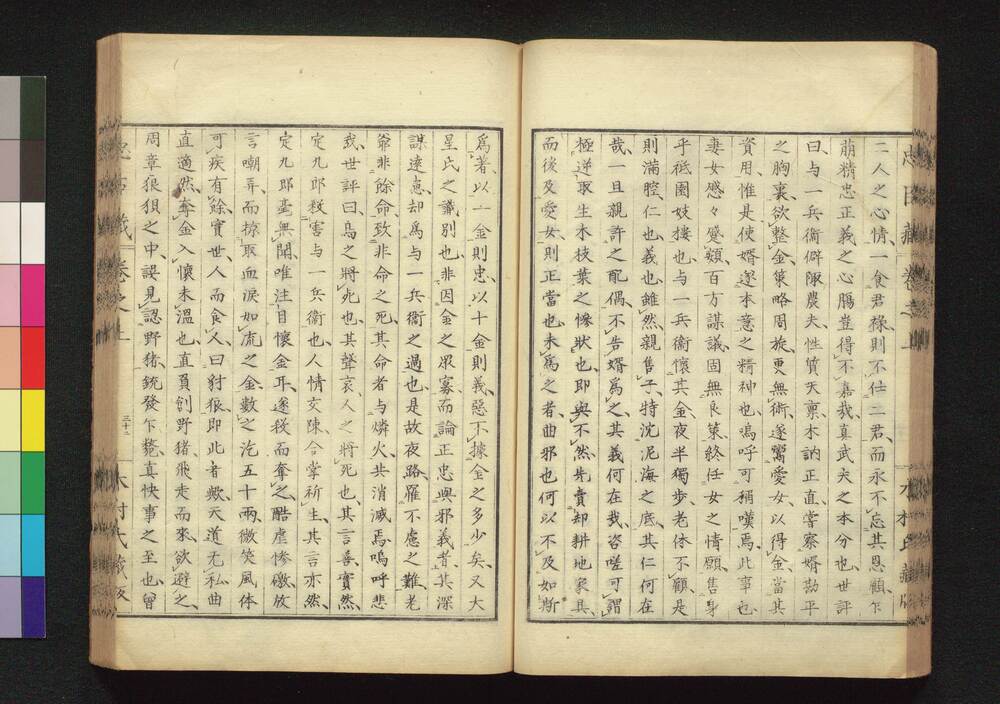 二人之心情、一食君祿則不仕二君、而永不忘其恩顧、乍
萠精忠正義之心膓豈得不嘉哉、真武夫之本分也、世評
曰、与一兵衞僻陬農夫、性質天禀木訥正直、嘗察婿勘平
之胸裏、欲整金策略周旋、更無術、遂鬻愛女、以得金、當其
資用、惟是使婿遂本意之精神也、嗚呼可稱嘆焉、此事也
妻女感々蹙頞百方謀議、固無良策、終任女之情願、售身
乎祗園妓樓也、与一兵衞懷其金、夜半獨步、老体不顧、是
則滿腔仁也義也、雖然、親售子、特沈泥海之底、其仁何在
哉、一旦親許之配偶、不告婿爲之、其義何在哉、咨嗟可謂
極逆取生木枝葉之慘狀也、即与不然、先賣却耕地家具、
而後及愛女、則正當也、未爲之者、曲邪也、何以不及如斯
爲著、以一金則忠、以十金則義、惡不據金之多少矣、又大
星氏之識別也、非因金之眾寡而論正忠與邪義者、其深
謀遠慮、却爲与一兵衞之過也、是故夜路罹不慮之難、老
爺非餘命致非命之死、其命者与燐火共消滅焉、嗚呼悲
哉、世評曰、鳥之將死也、其聲哀、人之將死也、其言善、實然、
定九郎殺害与一兵衞也、人情交陳合掌祈生、其言亦然、
定九郎毫無聞、唯注目懷金耳、遂殺而奪之、酷虐慘礉放
言嘲弄而掠取血淚如流之金、數之汔五十兩、微笑風体
可疾、有餘實世人而食人、曰豺狼、即此者歟、天道无私曲
直適然、奪金入懷未溫也、直負創野猪飛走而來、欲避之、
周章狼狽之中、誤見認野猪、銃發乍斃、真快事之至也、曾
卷之上
三十二
木村氏藏版